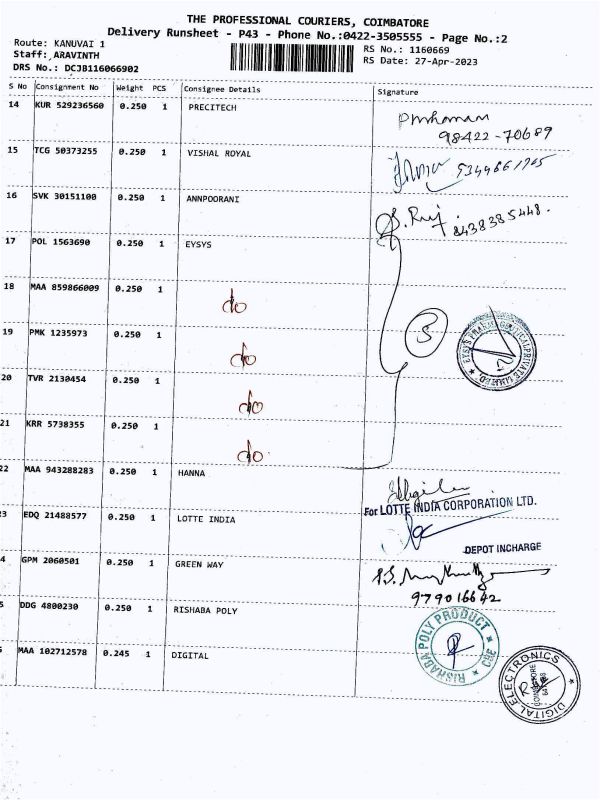 THE PROFESSIONAL COURIERS, COIMBATORE
Delivery Runsheet - P43 - Phone No.:0422-3505555 - Page No.:2
Route: KANUVAI 1
RS No.: 1160669
Staff: ARAVINTH
RS Date: 27-Apr-2023
DRS No.: DCJB116066902
S No Consignment No Weight PCS Consignee Details Signature
14 KUR 529236560 0.250 1 PRECITECH
98422-70689
15 TCG 50373255 0.250 1 VISHAL ROYAL
16 SVK 30151100 0.250 1 ANNPOORANI
8438385448.
17 POL 1563690 0.250 1 EYSYS
18 MAA 859866009 0.250 1 do
19 PMK 1235973 0.250 1 do
20 TVR 2130454 0.250 1 do
21 KRR 5738355 0.250 1 do
22 MAA 943288283 0.250 1 HANNA
5
For LOTTE INDIA CORPORATION LTD.
3 EDQ 21488577 0.250 1 LOTTE INDIA
DEPOT INCHARGE
4 GPM 2060501 0.250 1 GREEN WAY
979016642
5 DDG 4800230 0.250 1 RISHABA POLY
RISHABA POLY PRODUCT CBE
MAA 102712578 0.245 1 DIGITAL
DIGITAL ELECTRONICS
COIMBATORE